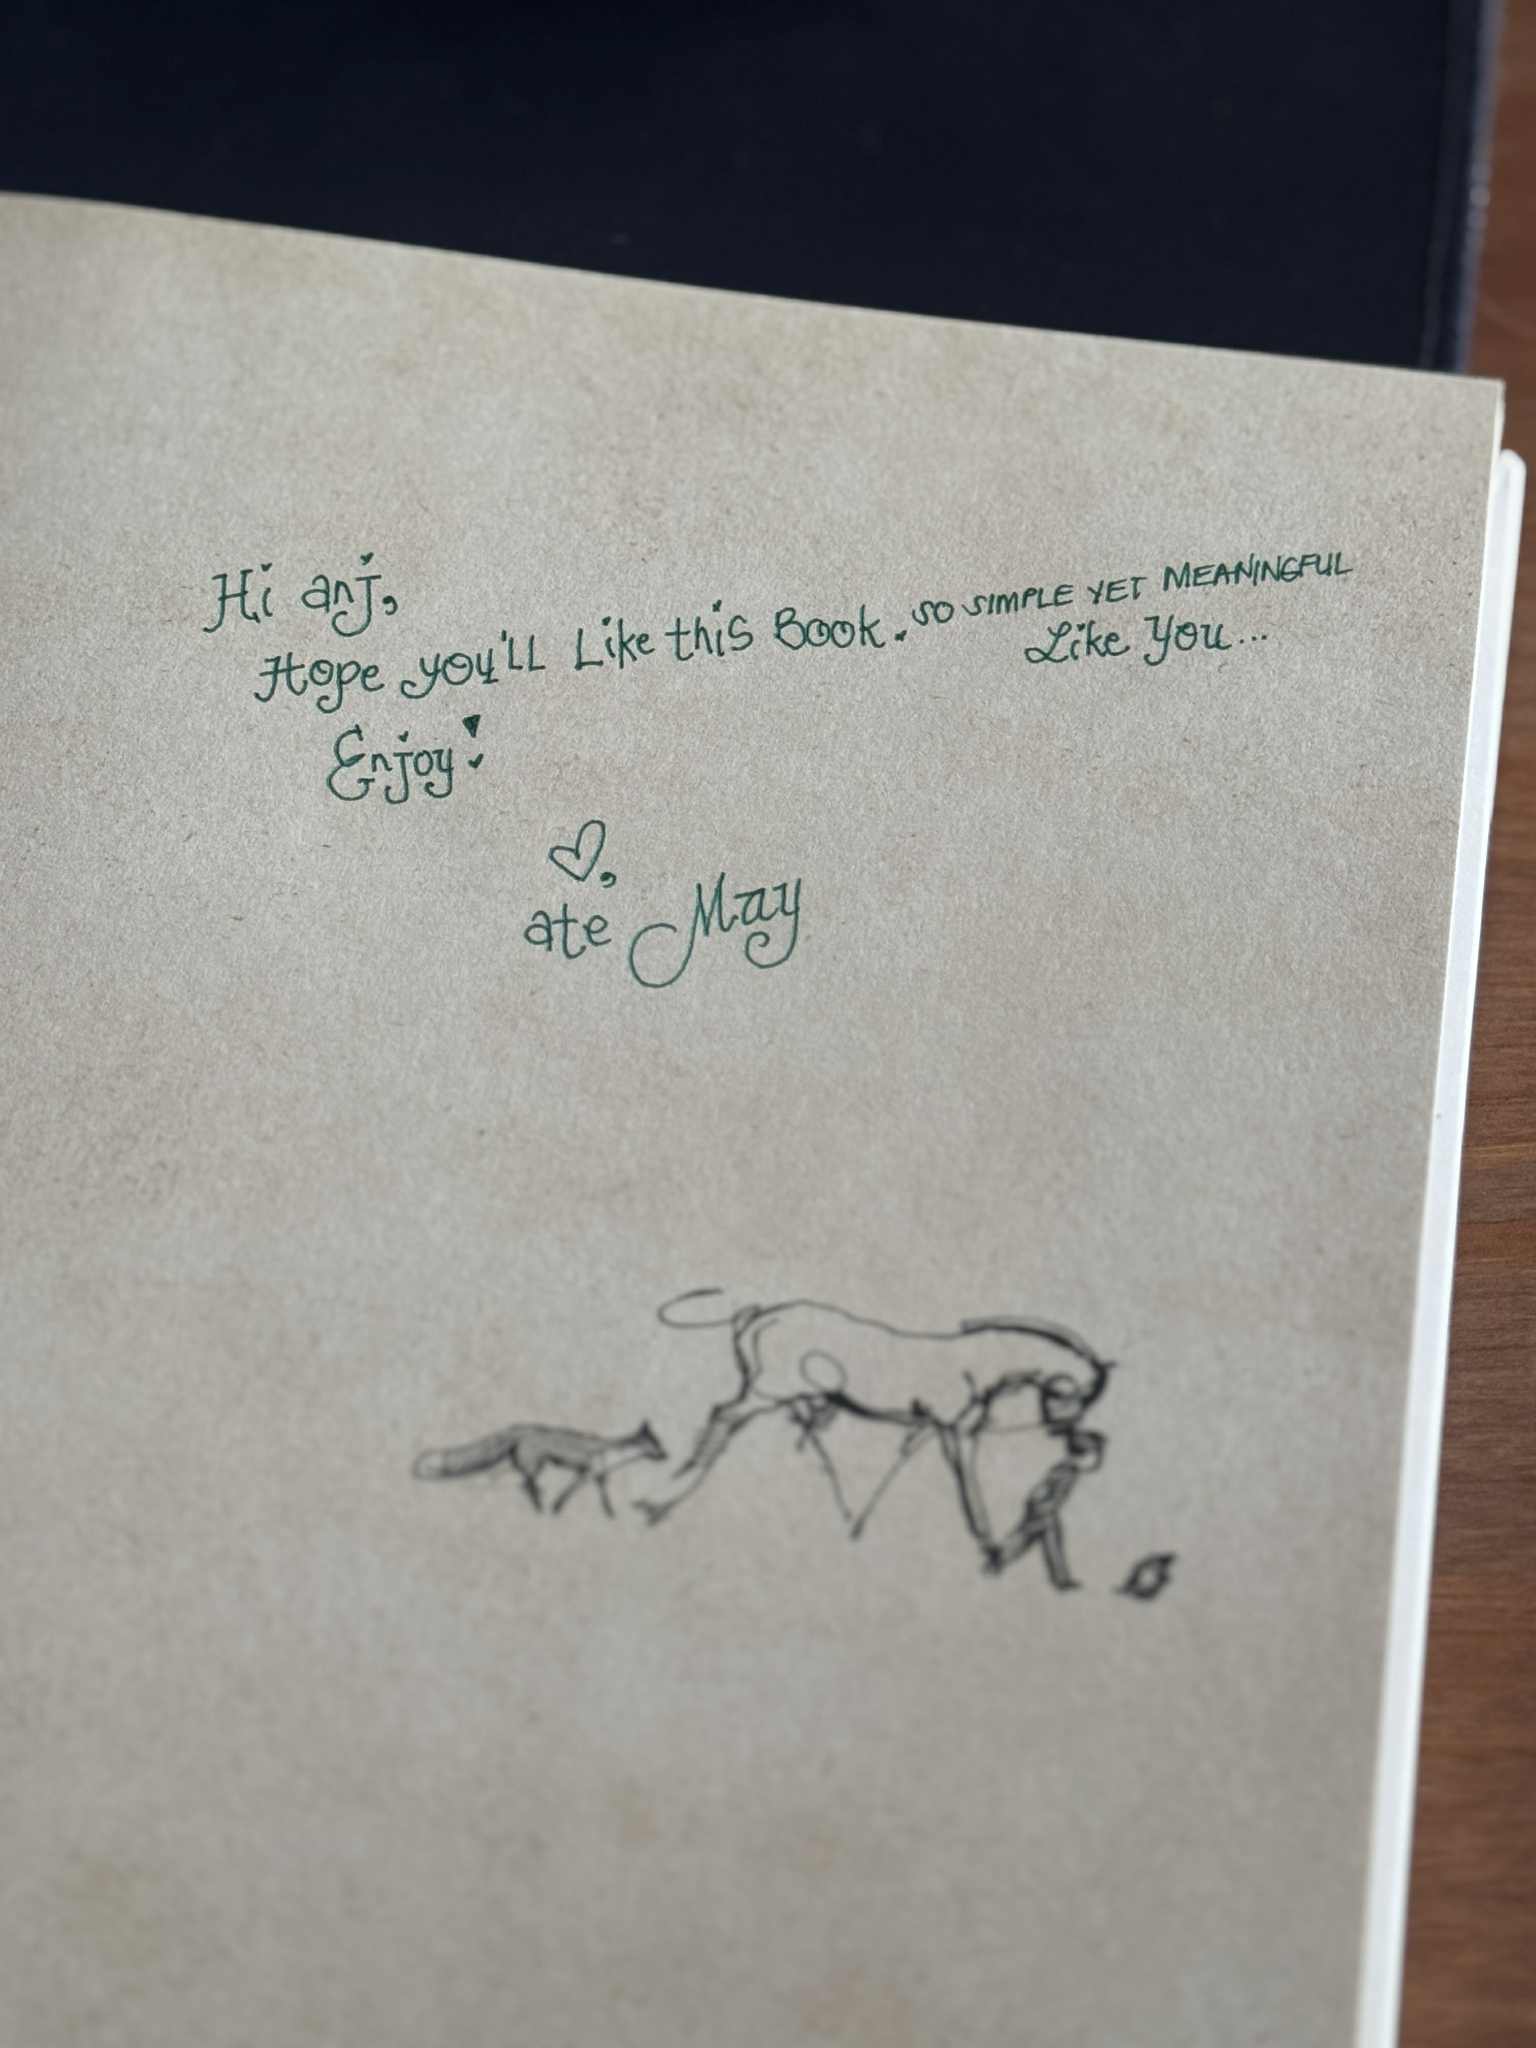 Hi anj,
Hope you'll Like this Book. SO SIMPLE YET MEANINGFUL
Like You...
Enjoy!
♡,
ate May